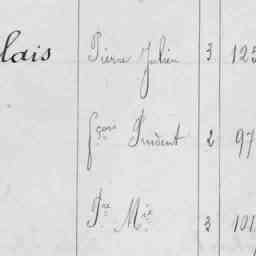 lais Pierre Julien 3 125
fçois Prudent 2 97
Pre Mie 3 101